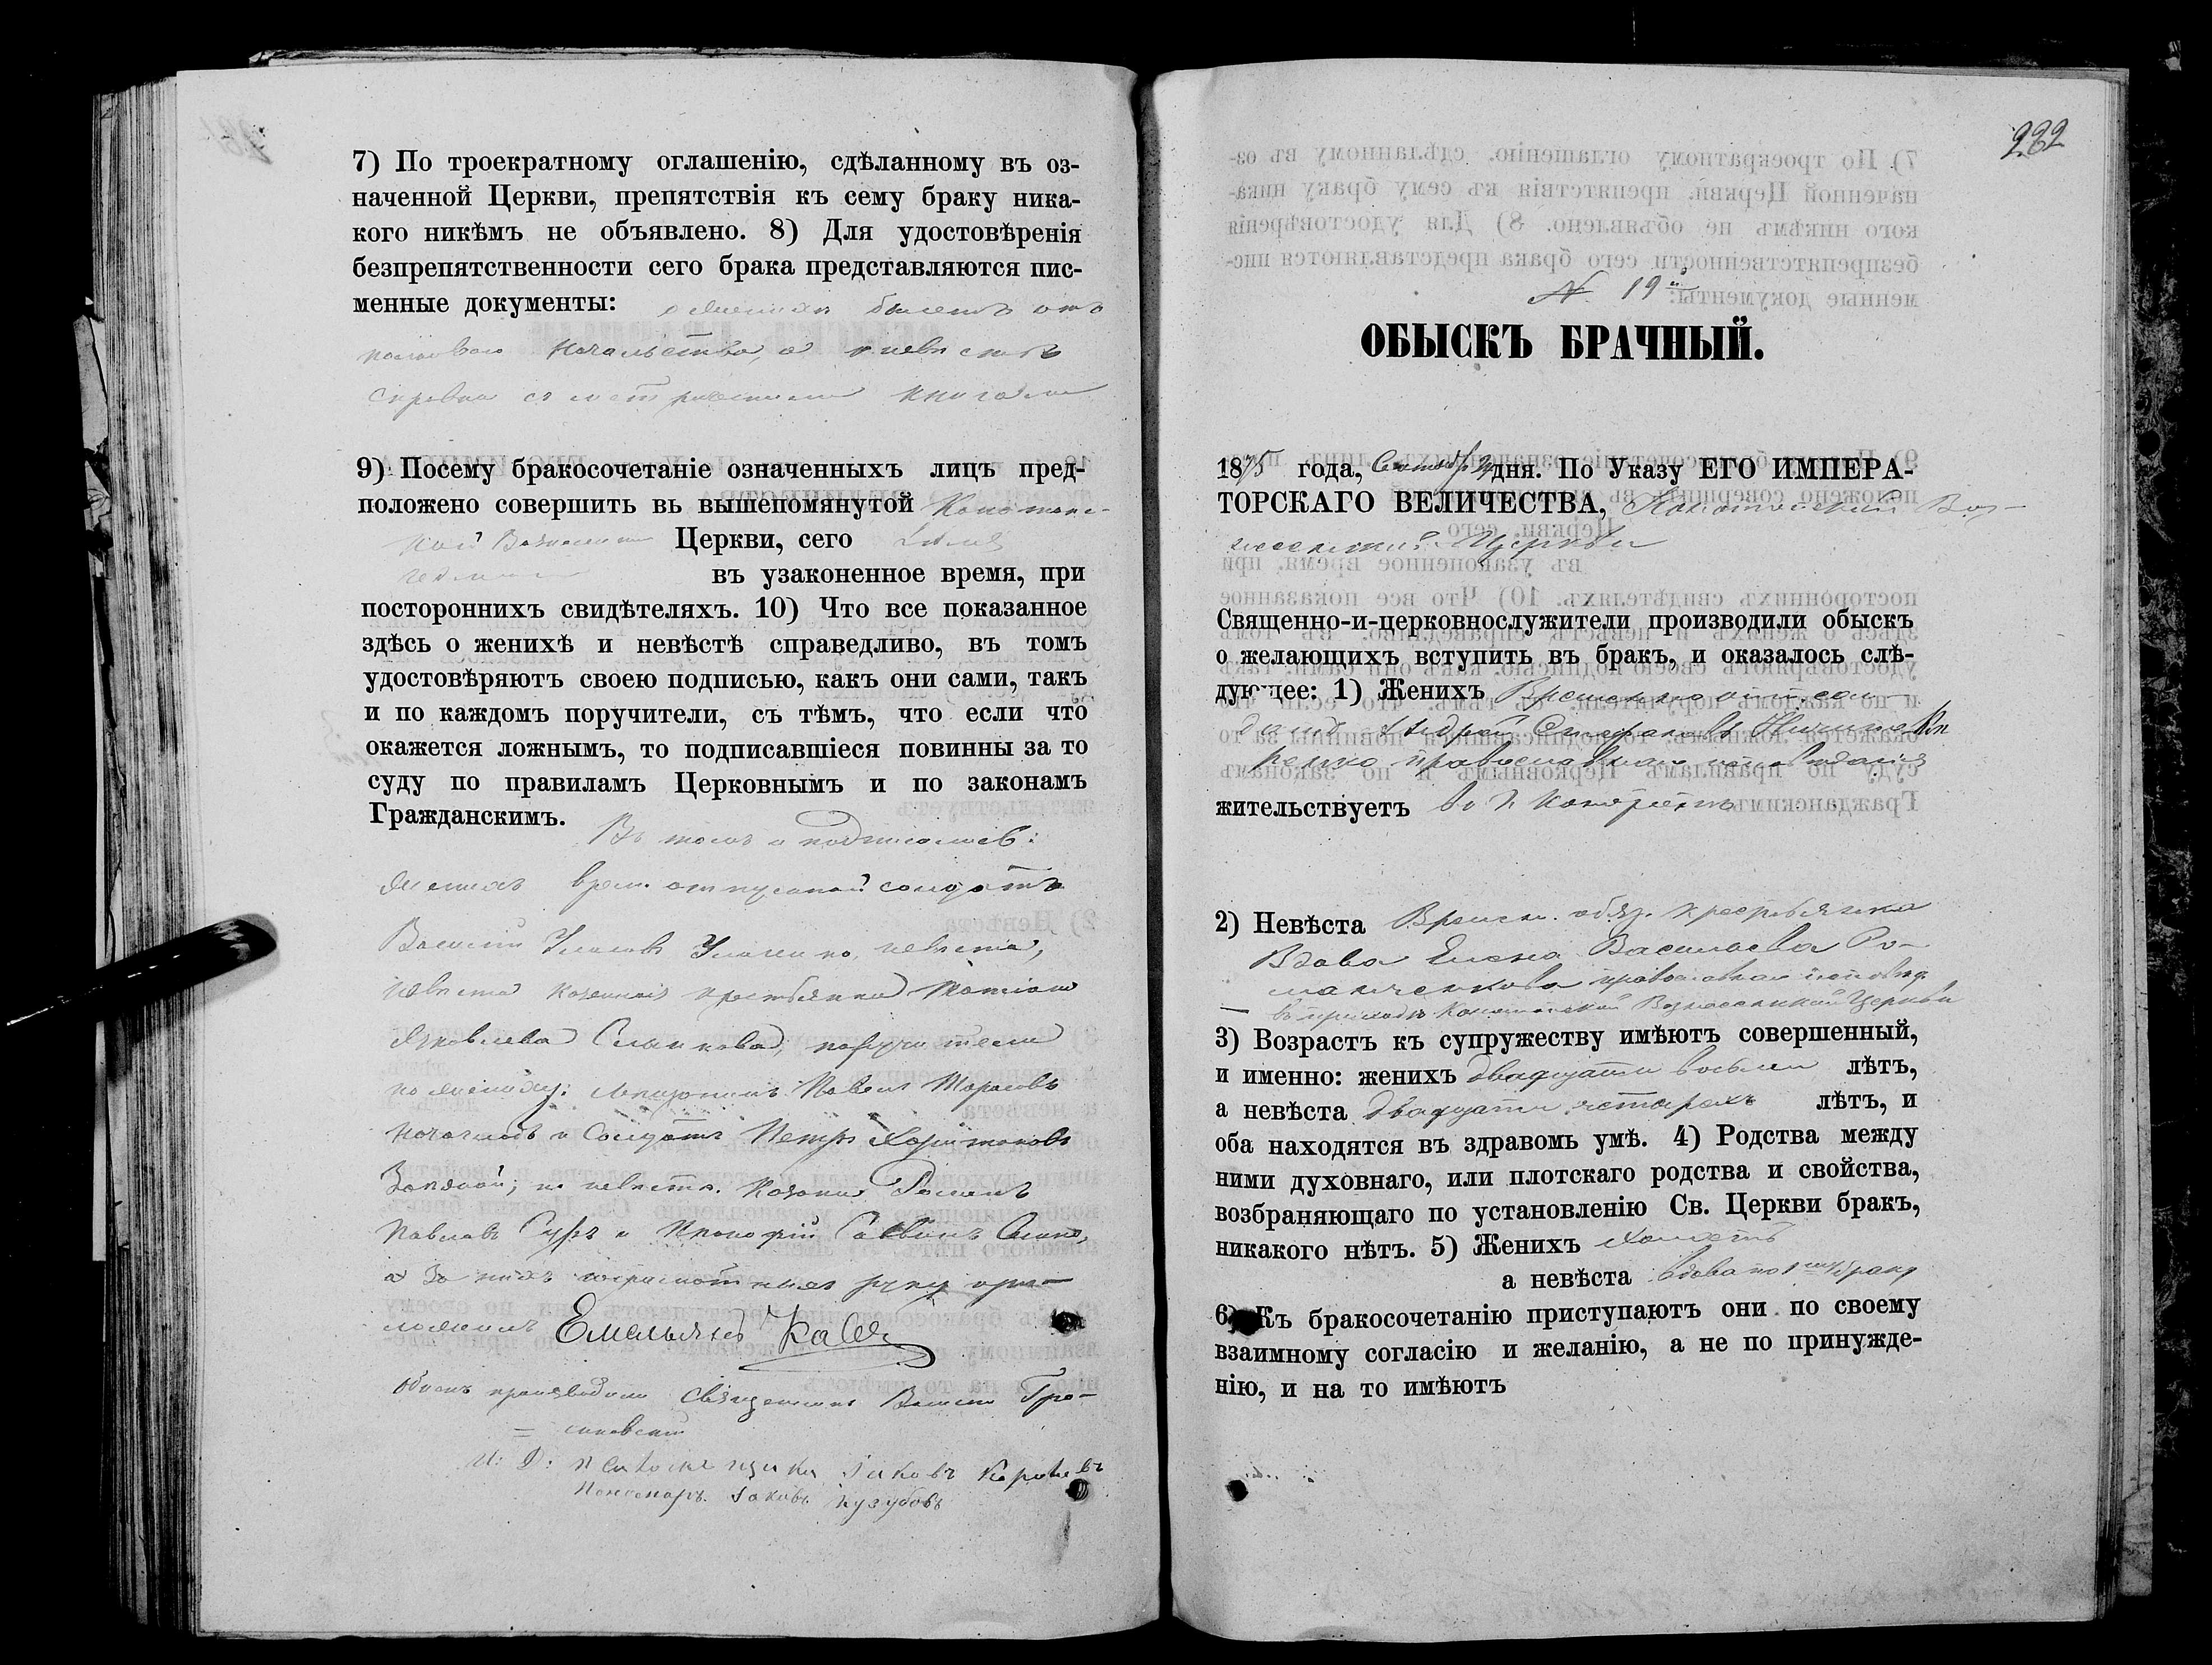 7) По троекратному оглашенію, сдѣланному въ оз-
наченной Церкви, препятствія къ сему браку ника-
кого никѣмъ не объявлено. 8) Для удостовѣренія
безпрепятственности сего брака представляются пис-
менные документы: билетъ отъ
начальства, а о невѣстѣ
справка съ метрическими книгами
9) Посему бракосочетаніе означенныхъ лицъ пред-
положено совершить въ вышепомянутой Конотопс-
кой Вознесен Церкви, сего
въ узаконенное время, при
постороннихъ свидѣтеляхъ. 10) Что все показанное
здѣсь о женихѣ и невѣстѣ справедливо, въ томъ
удостовѣряютъ своею подписью, какъ они сами, такъ
и по каждомъ поручители, съ тѣмъ, что если что
окажется ложнымъ, то подписавшіеся повинны за то
суду по правиламъ Церковнымъ и по законамъ
Гражданскимъ.
Въ томъ и подписались:
женихъ врем. отпускной солдатъ
невѣста,
невѣста козачка
Яковлева поручители
по женихѣ: Павелъ Тарасовъ
и Солдатъ Петръ Харитоновъ
по невѣстѣ. козаки Романъ
Павловъ и Прокофій Саввинъ
а за нихъ неграмотныхъ руку при-
ложилъ Емельянъ
обыскъ производили Священникъ Василій Гра-
И: Д: Псаломщика Іаковъ
Пономарь Іаковъ
232
N 19й
ОБЫСКЪ БРАЧНЫЙ.
1875 года, дня. По Указу ЕГО ИМПЕРА-
ТОРСКАГО ВЕЛИЧЕСТВА, Конотопской Воз-
несенской Церкви
Священно-и-церковнослужители производили обыскъ
о желающихъ вступить въ бракъ, и оказалось слѣ-
дующее: 1) Женихъ Временно отп. сол-
датъ Андрей Стефановъ
православнаго исповѣданія
жительствуетъ въ г. Конотопѣ
2) Невѣста Времен. обяз. крестьянка
Вдова Елена Васильева Ро-
маненкова православнаго исповѣд.
въ приходѣ Конотопской Вознесенской Церкви
3) Возрастъ къ супружеству имѣютъ совершенный,
и именно: женихъ двадцати восьми лѣтъ,
а невѣста двадцати четырехъ лѣтъ, и
оба находятся въ здравомъ умѣ. 4) Родства между
ними духовнаго, или плотскаго родства и свойства,
возбраняющаго по установленію Св. Церкви бракъ,
никакого нѣтъ. 5) Женихъ холостъ
а невѣста вдова по 1му браку
6) Къ бракосочетанію приступаютъ они по своему
взаимному согласію и желанію, а не по принужде-
нію, и на то имѣютъ